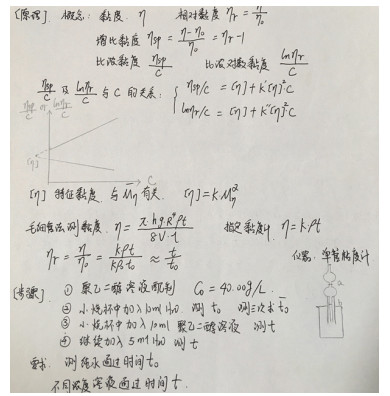 [原理] 概念: 黏度. η 相对黏度 ηr = η/η0
增比黏度 ηsp = (η-η0)/η0 = ηr-1
比浓黏度 ηsp/C 比浓对数黏度 lnηr/C
ηsp/C 及 lnηr/C 与 C 的关系: { ηsp/c = [η]+K'[η]²C
lnηr/c = [η]+K''[η]²C
ηsp/C or lnηr/C
[η]
C
[η] 特征黏度, 与 Mη 有关. [η]=KMη^α
毛细管法测黏度. η = π·hgR⁴ρt/8V·l 指定黏度计. η=kρt
ηr = η/η0 = kρt/kρ0t0 ≈ t/t0
仪器: 单管黏度计
a
[步骤] ① 聚乙二醇溶液配制 C0 = 40.00g/L.
② 小烧杯中加入10ml H2O 测 t0 测三次求 t0
③ 小烧杯中加入10ml 聚乙二醇溶液 测 t
④ 继续加入 5ml H2O 测 t
要求: 测纯水通过时间 t0
不同浓度溶液通过时间 t.